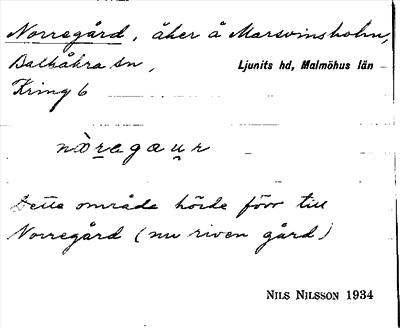 Norregård, åker å Marsvinsholm,
Balkåkra sn, Ljunits hd, Malmöhus län
Kring 6
nòregaur
Detta område hörde förr till
Norregård (nu riven gård)
NILS NILSSON 1934